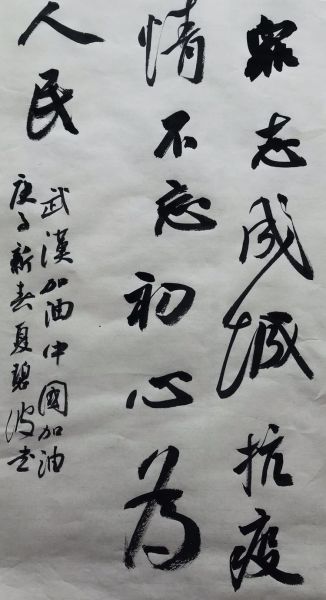 眾志成城抗疫
情不忘初心為
人民
武漢加油中國加油
庚子新春夏碧波书